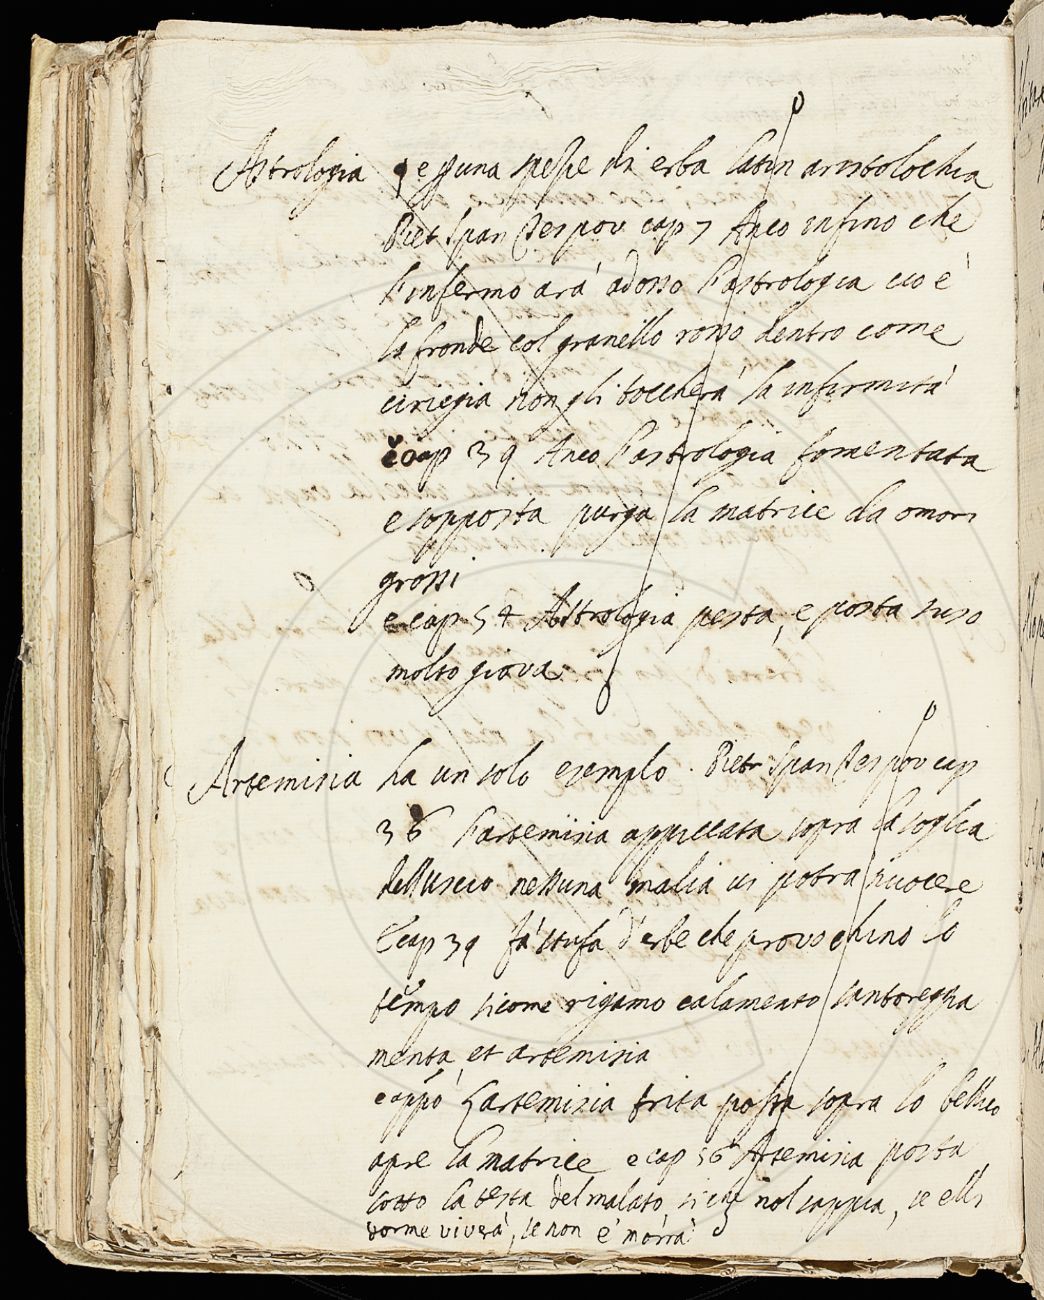 Astrologia e una spesie di erba latin aristolochia
Piet Span Tes pov cap 7 Anco infino che
l'infermo arà adosso l'astrologia cio è
la fronde col granello rosso dentro come
ciriegia non gli toccherà la infirmità
e cap 39 Anco l'astrologia fomentata
e sopposta purga la matrice da omori
grossi
e cap 54 Astrologia pesta, e posta suso
molto giova
Artemisia ha un solo esemplo. Piet Span Tes pov cap
36 l'artemisia appiccata sopra la soglia
dell'uscio nessuna malia vi potrà nuocere
E cap 39 fà stufa d'erbe che provochino lo
tempo sicome rigamo calamento santoreggia
menta, et artemisia
e appò L'artemisia trita posta sopra lo bellico
apre la matrice e cap 56 Artemisia posta
sotto la testa del malato, si che nol sappia, se elli
dorme viverà, se non è morrà